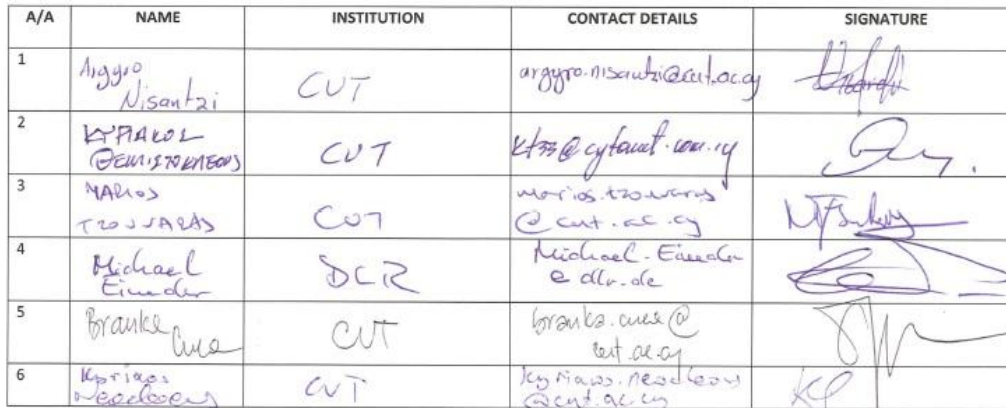 A/A NAME INSTITUTION CONTACT DETAILS SIGNATURE
1 Argyro Nisantzi CUT argyro.nisantzi@cut.ac.cy
2 ΚΥΡΙΑΚΟΣ ΘΕΜΙΣΤΟΚΛΕΟΥΣ CUT
3 MARIOS TZOUVARAS CUT marios.tzouvaras
@cut.ac.cy
4 Michael Eineder DLR Michael.Eineder
@dlr.de
5 Branka Cuca CUT branka.cuca@
cut.ac.cy
6 Kyriacos Neocleous CUT kyriacos.neocleous
@cut.ac.cy